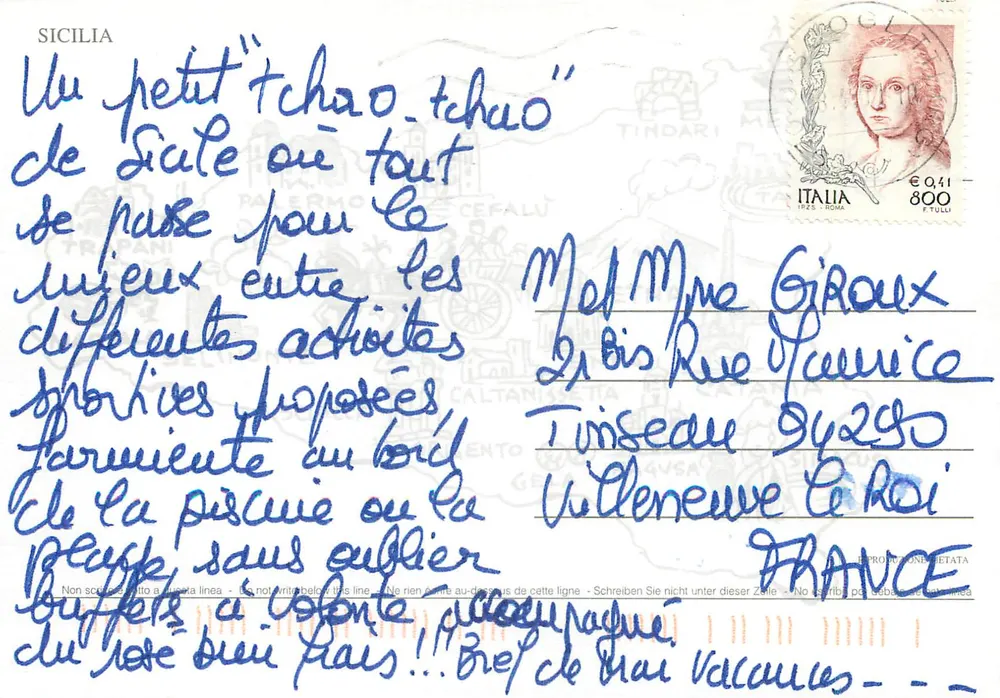 SICILIA
Un petit "tchao-tchao"
de Sicile où tout
se passe pour le
mieux entre les
différentes activités
sportives proposées,
farniente au bord
de la piscine ou la
plage, sans oublier
buffets à volonté accompagné
du rosé bien frais!!! Bref de vrai vacances - - -
ITALIA
€ 0,41
800
IPZS - ROMA
F. TULLI
M et Mme GIROUX
21 Bis Rue Maurice
Tinseau 94290
Villeneuve Le Roi
FRANCE
TINDARI
PALERMO
CEFALU
TRAPANI
CALTANISSETTA
CATANIA
RIPRODUZIONE VIETATA
Non scrivere sotto a questa linea - Do not write below this line - Ne rien écrire au-dessous de cette ligne - Schreiben Sie nicht unter dieser Zeile - No escriba por debajo de esta línea